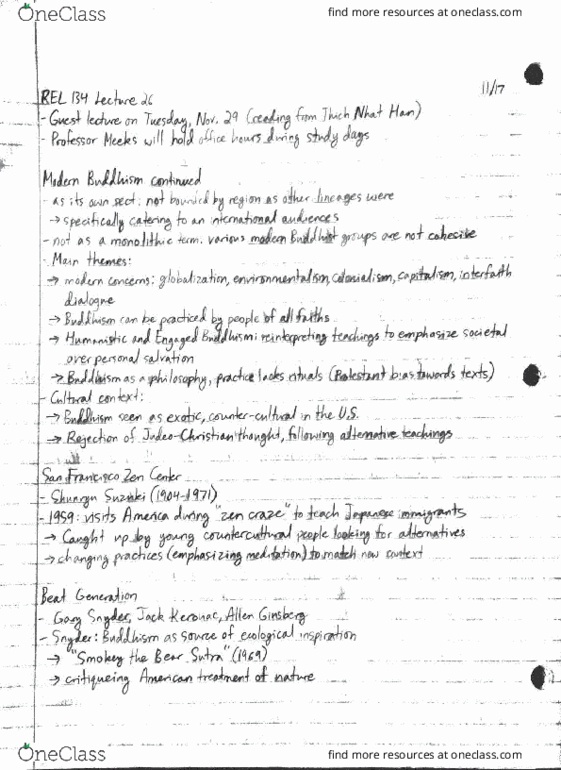 OneClass
find more resources at oneclass.com
11/17
REL 134 Lecture 26
- Guest lecture on Tuesday, Nov. 29 (reading from Thich Nhat Han)
- Professor Meeks will hold office hours during study days
Modern Buddhism continued
- as its own sect: not bounded by region as other lineages were
→ specifically catering to an international audiences
- not as a monolithic term: various modern Buddhist groups are not cohesive
- Main themes:
→ modern concerns: globalization, environmentalism, colonialism, capitalism, interfaith
dialogue
→ Buddhism can be practiced by people of all faiths
→ Humanistic and Engaged Buddhism: reinterpreting teachings to emphasize societal
over personal salvation
→ Buddhism as a philosophy, practice lacks rituals (Protestant bias towards texts)
- Cultural context:
→ Buddhism seen as exotic, counter-cultural in the U.S.
→ Rejection of Judeo-Christian thought, following alternative teachings
San Francisco Zen Center
- Shunryu Suzuki (1904-1971)
- 1959: visits America during "zen craze" to teach Japanese immigrants
→ Caught up by young countercultural people looking for alternatives
→ changing practices (emphasizing meditation) to match new context
Beat Generation
- Gary Snyder, Jack Kerouac, Allen Ginsberg
- Snyder: Buddhism as source of ecological inspiration
→ "Smokey the Bear Sutra" (1969)
→ critiqueing American treatment of nature
OneClass
find more resources at oneclass.com